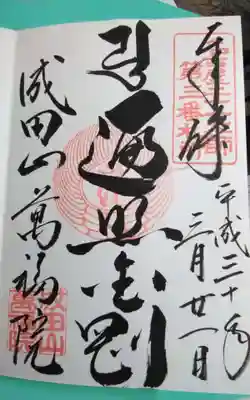 奉拝
第三番札所
平成三十年
三月廿一日
遍照金剛
成田山萬福院